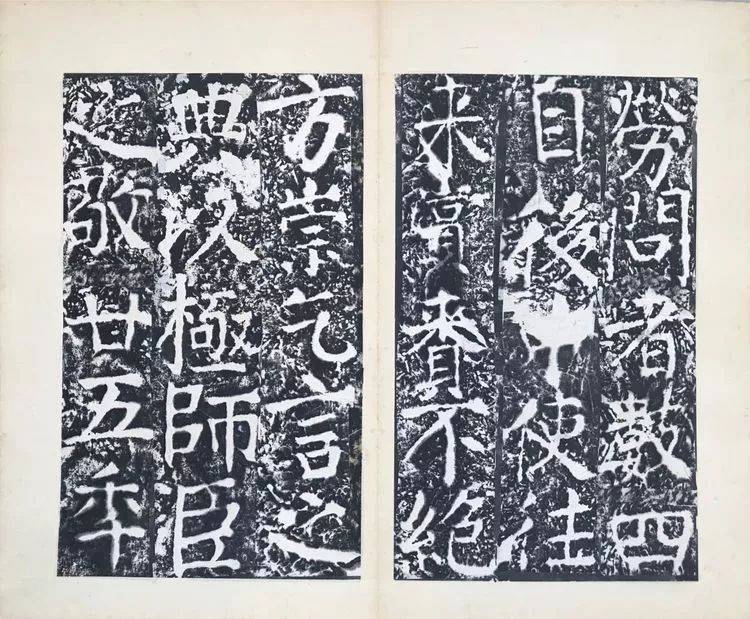 勞問者數四
自後中使往
来賞賚不絶
方崇乞言之
典以極師臣
之敬廿五年